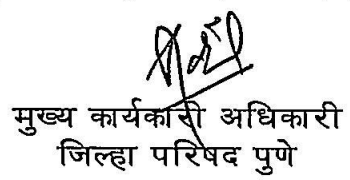 मुख्य कार्यकारी अधिकारी
जिल्हा परिषद पुणे